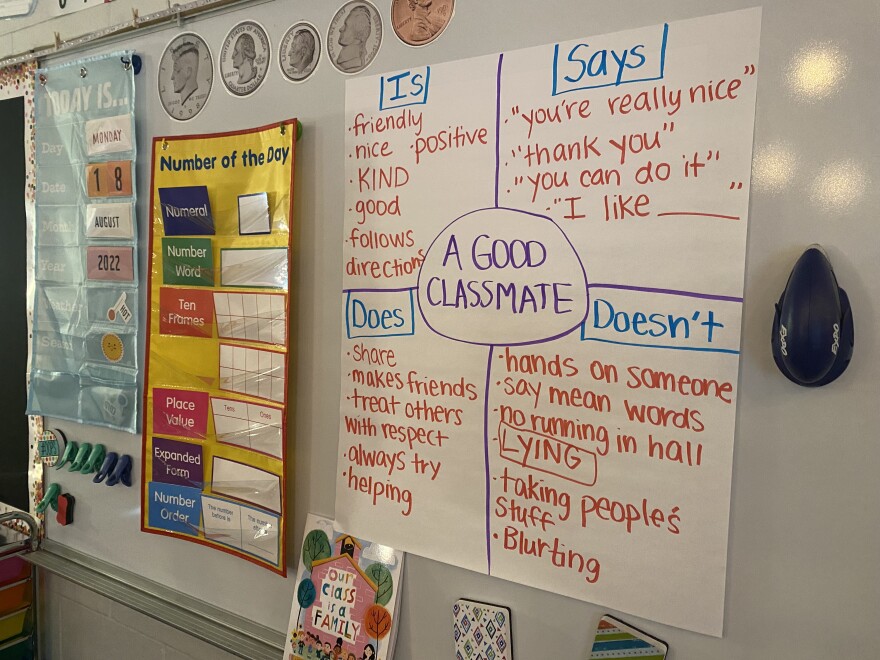 TODAY IS...
Day
MONDAY
Date
18
Month
AUGUST
Year
2022
Weather
HOT
Number of the Day
Numeral
Number
Word
Ten
Frames
Place
Value
Tens
Ones
Expanded
Form
Number
Order
The number
before is
Is
·friendly
·nice ·positive
·KIND
·good
·follows
directions
Says
·"you're really nice"
·"thank you"
·"you can do it"
·"I like ______"
A GOOD
CLASSMATE
Does
·share
·makes friends
·treat others
with respect
·always try
·helping
Doesn't
·hands on someone
·say mean words
·no running in hall
·LYING
·taking people's
stuff
·Blurting
OUR
CLASS
is a
FAMILY
EXPO